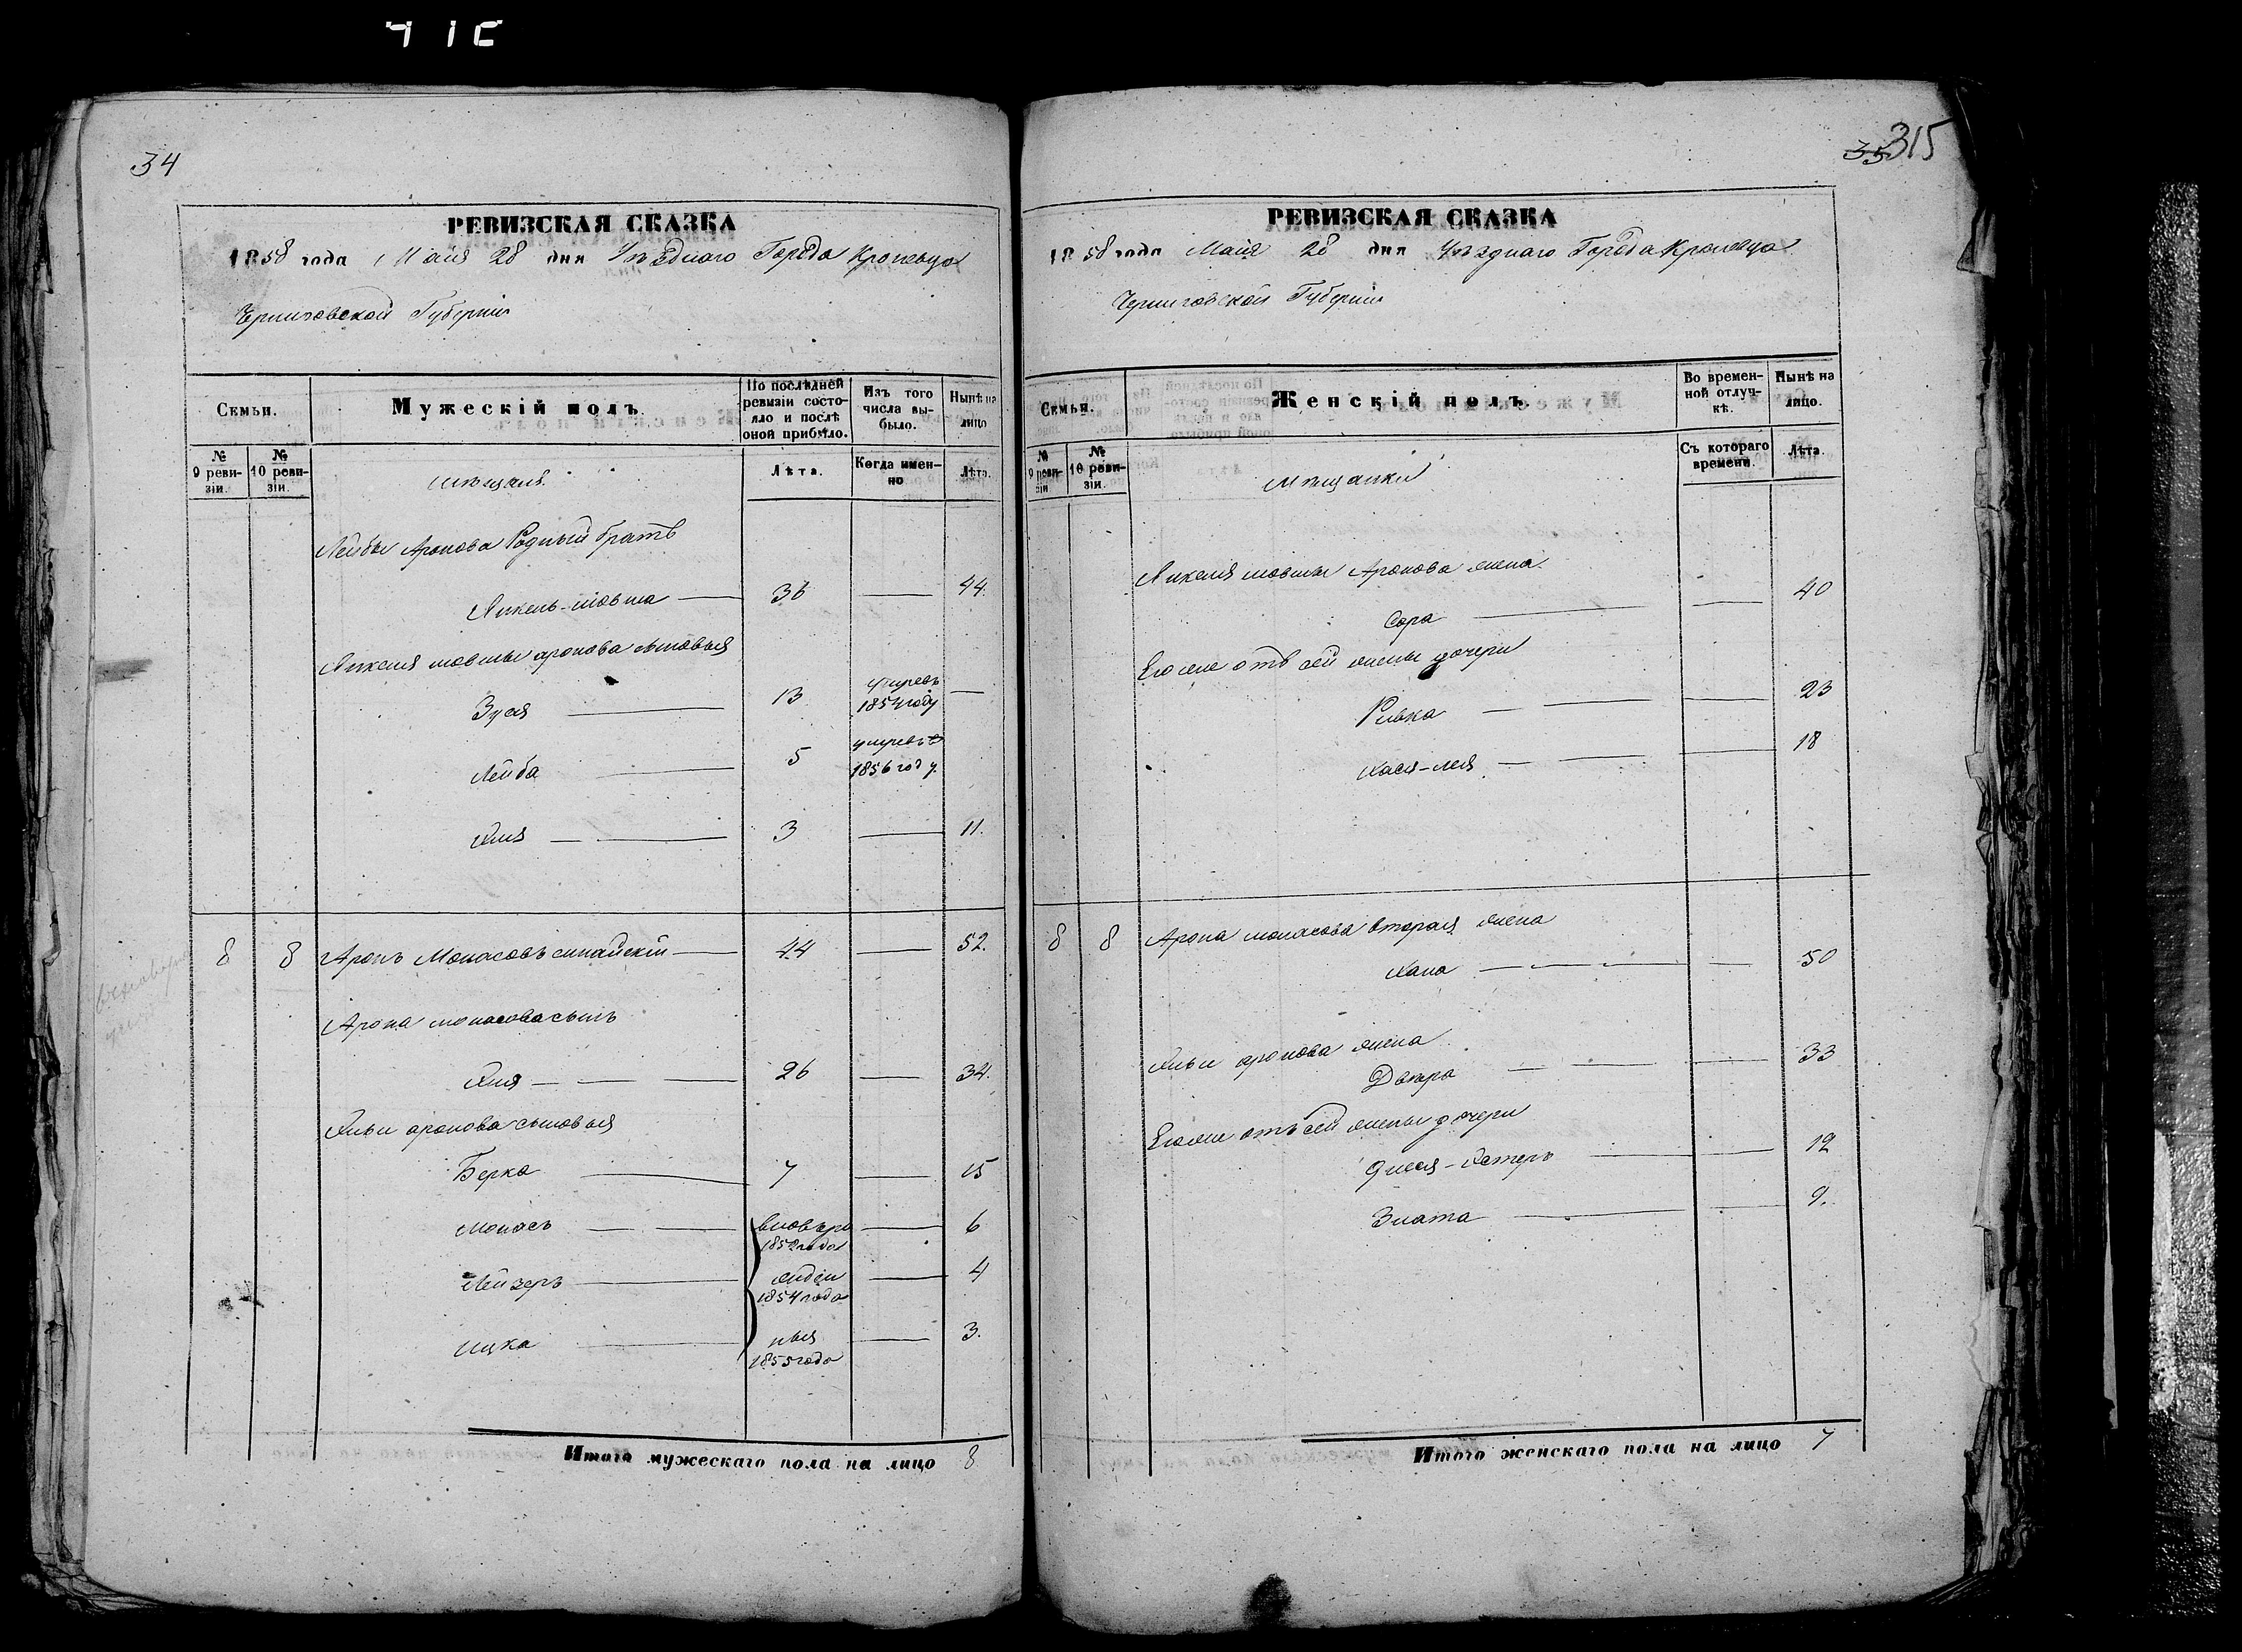 34
РЕВИЗСКАЯ СКАЗКА
1858 года Маія 28 дня Уѣзднаго Города Кролевца
Черниговской Губерніи
Семьи.
Мужескій полъ.
По послѣдней ревизіи состояло и послѣ оной прибыло.
Изъ того числа выбыло.
Нынѣ на лицо
№ 9 ревизіи.
№ 10 ревизіи.
мѣщане
Лѣта.
Когда именно
Лѣта.
Лейбы Аронова Родный братъ
Янкель-мовша 36 44.
Янкеля мовшы аронова сыновья
Зуся 13 умеръ 1854 году
Лейба 5 умеръ 1856 году.
Эля 3 11.
8 8 Аронъ Монасовъ синайскій 44 52.
Арона монасова сынъ
Эля 26 34.
Эльи аронова сыновья
Берка 7 15
Монасъ вновьро 1852 года 6
Лейзеръ жден 1854 года 4
Ицка ныя 1855 года 3.
Итого мужескаго пола на лицо 8
35 315
РЕВИЗСКАЯ СКАЗКА
1858 года Маія 28 дня Уѣзднаго Города Кролевца
Черниговской Губерніи
Семьи.
Женскій полъ.
Во временной отлучкѣ.
Нынѣ на лицо.
№ 9 ревизіи
№ 10 ревизіи.
мѣщанки
Съ котораго времени.
Лѣта.
Янкеля мовшы Аронова жена
Сора 40
Его же отъ сей жены дочери
Ривка 23
Хася-лея 18
8 8 Арона монасова вторая жена
Хана 50
Эльи аронова жена
Двера 33
Его же отъ сей жены дочери
12
Злата 9.
Итого женскаго пола на лицо 7